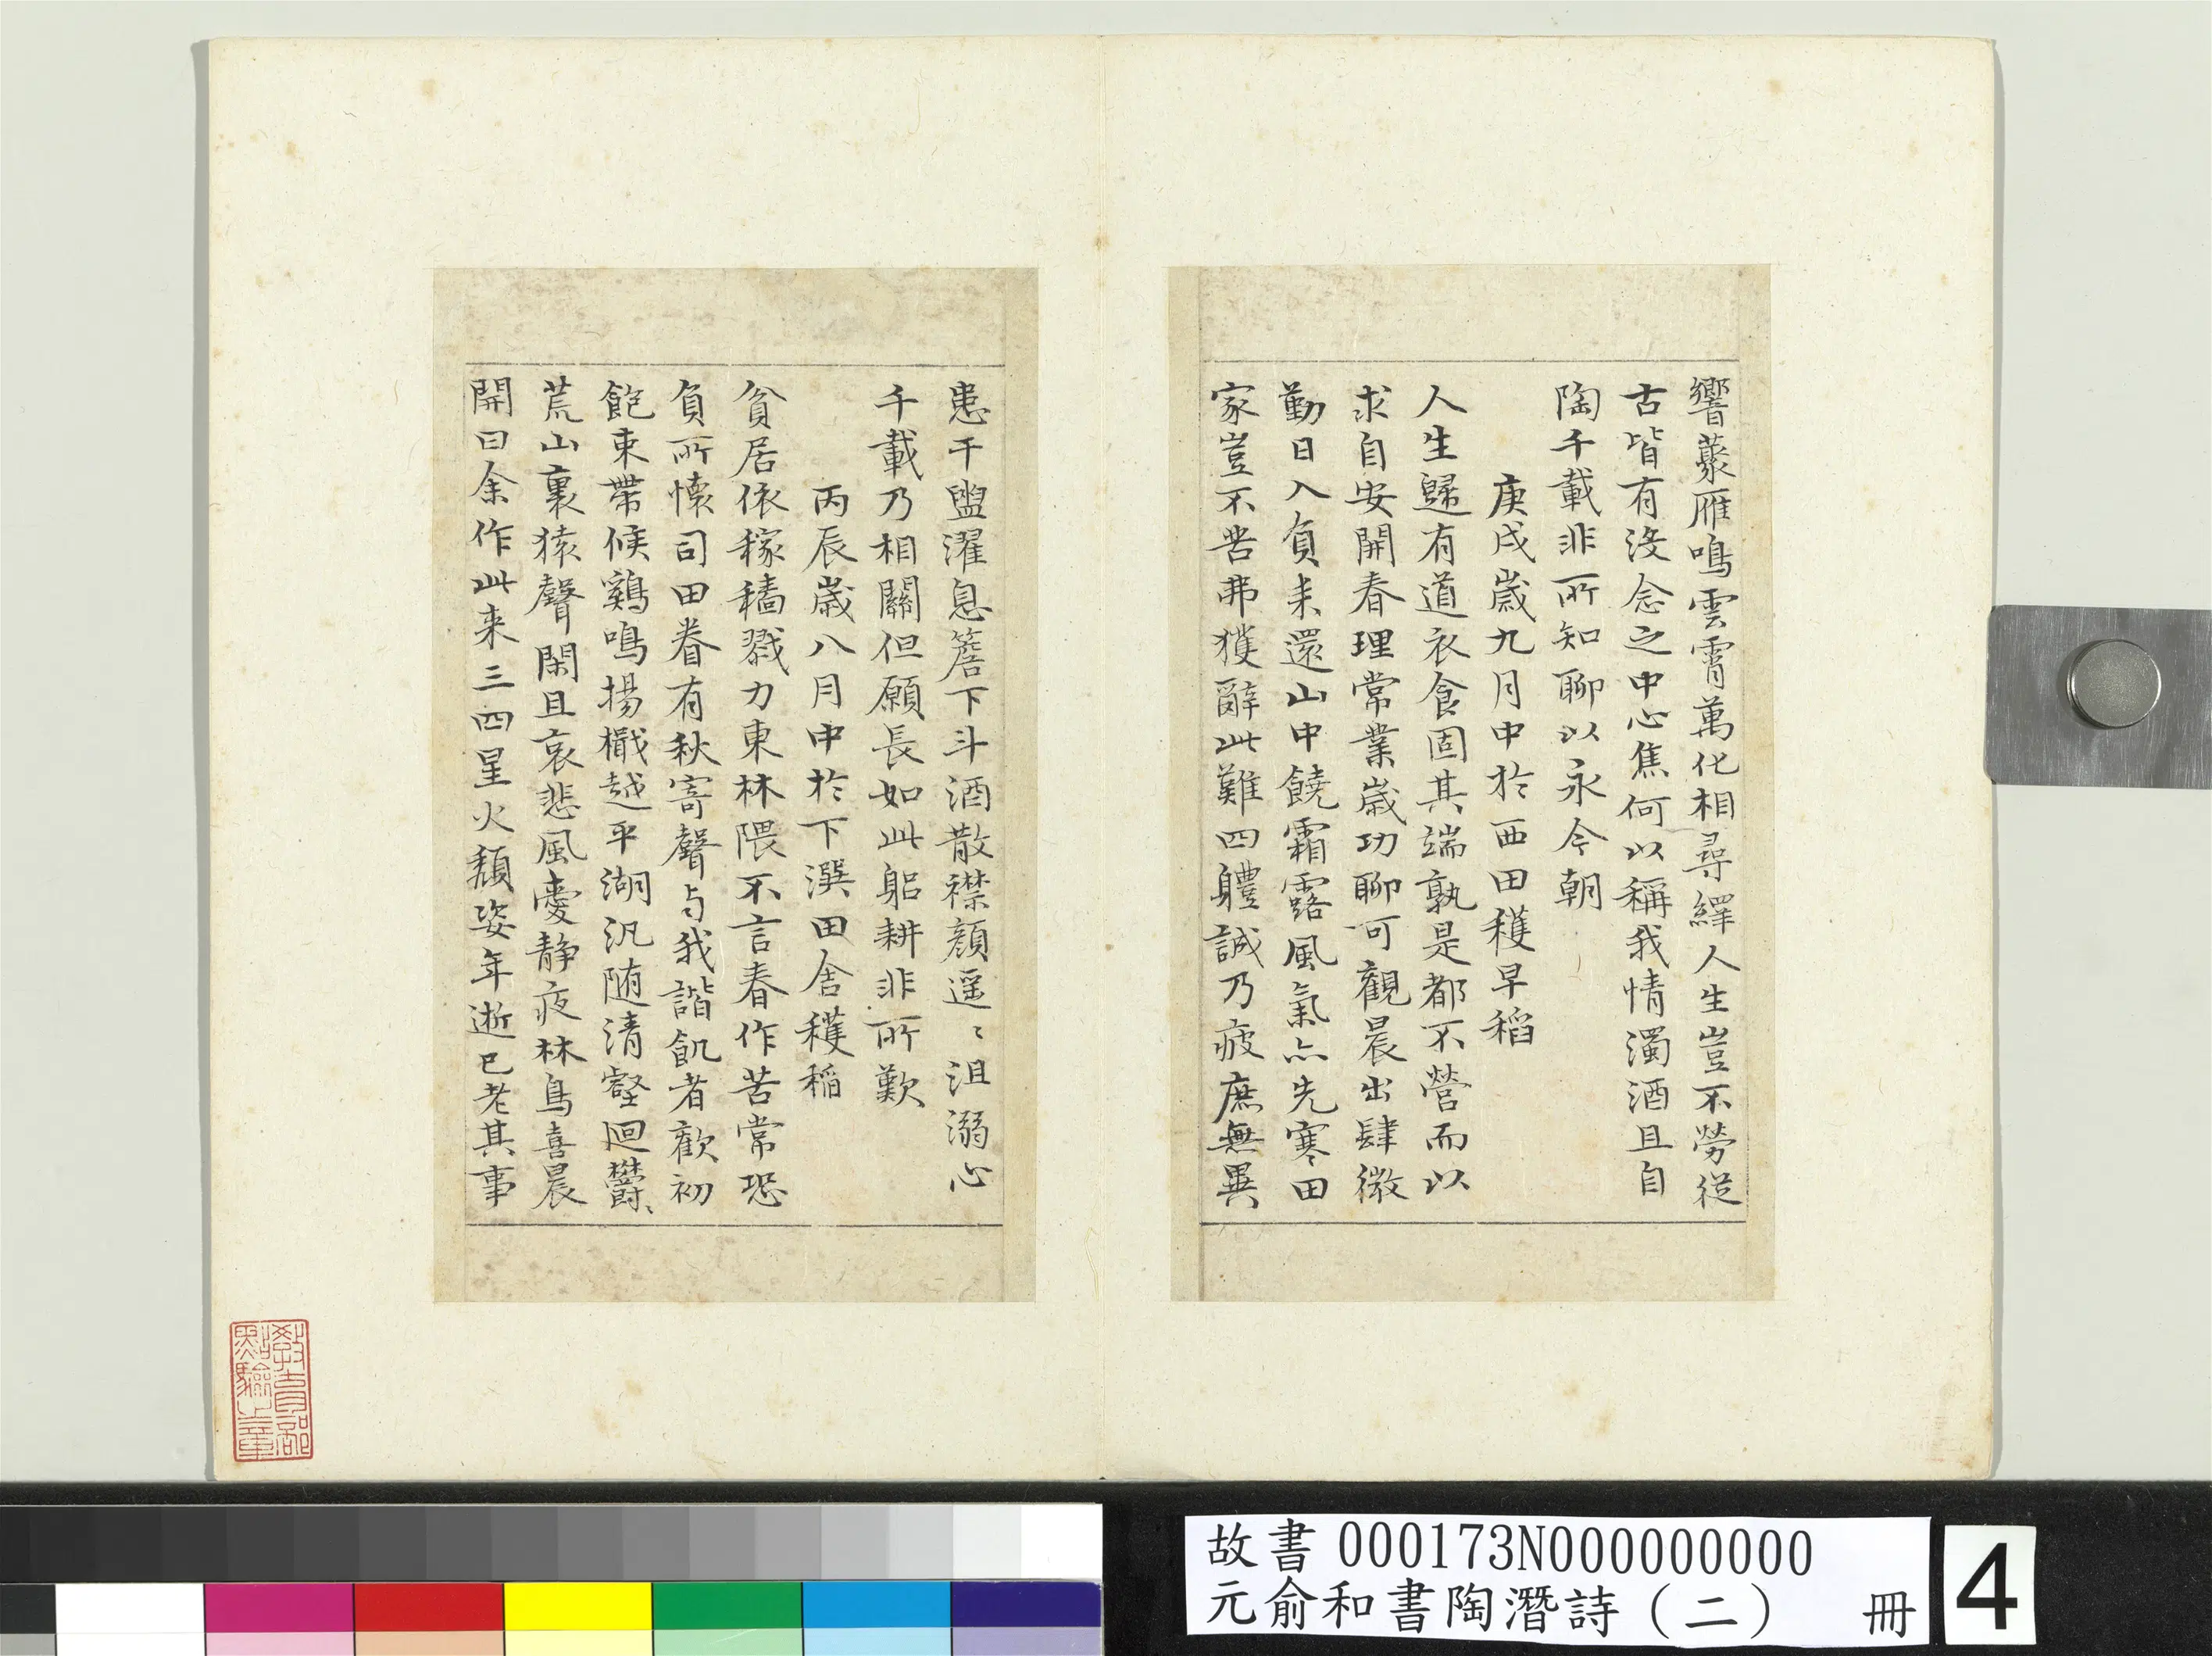 響藂雁鳴雲霄萬化相尋繹人生豈不勞從
古皆有没念之中心焦何以稱我情濁酒且自
陶千載非所知聊以永今朝
庚戌歲九月中於西田穫早稻
人生歸有道衣食固其端孰是都不營而以
求自安開春理常業歲功聊可觀晨出肆微
勤日入負耒還山中饒霜露風氣亦先寒田
家豈不苦弗獲辭此難四軆誠乃疲庶無異
患干盥濯息簷下斗酒散襟顏遥〻沮溺心
千載乃相關但願長如此躬耕非所歎
丙辰歲八月中於下潠田舍穫稲
貧居依稼穡戮力東林隈不言春作苦常恐
負所懷司田眷有秋寄聲与我諧飢者歡初
飽束帶候鷄鳴揚檝越平湖汎随清壑廻欝〻
荒山裏猿聲閑且哀悲風愛静夜林鳥喜晨
開曰余作此来三四星火頽姿年逝已老其事
教育部
點驗之章
故書 000173N000000000
元俞和書陶潛詩（二） 冊
4